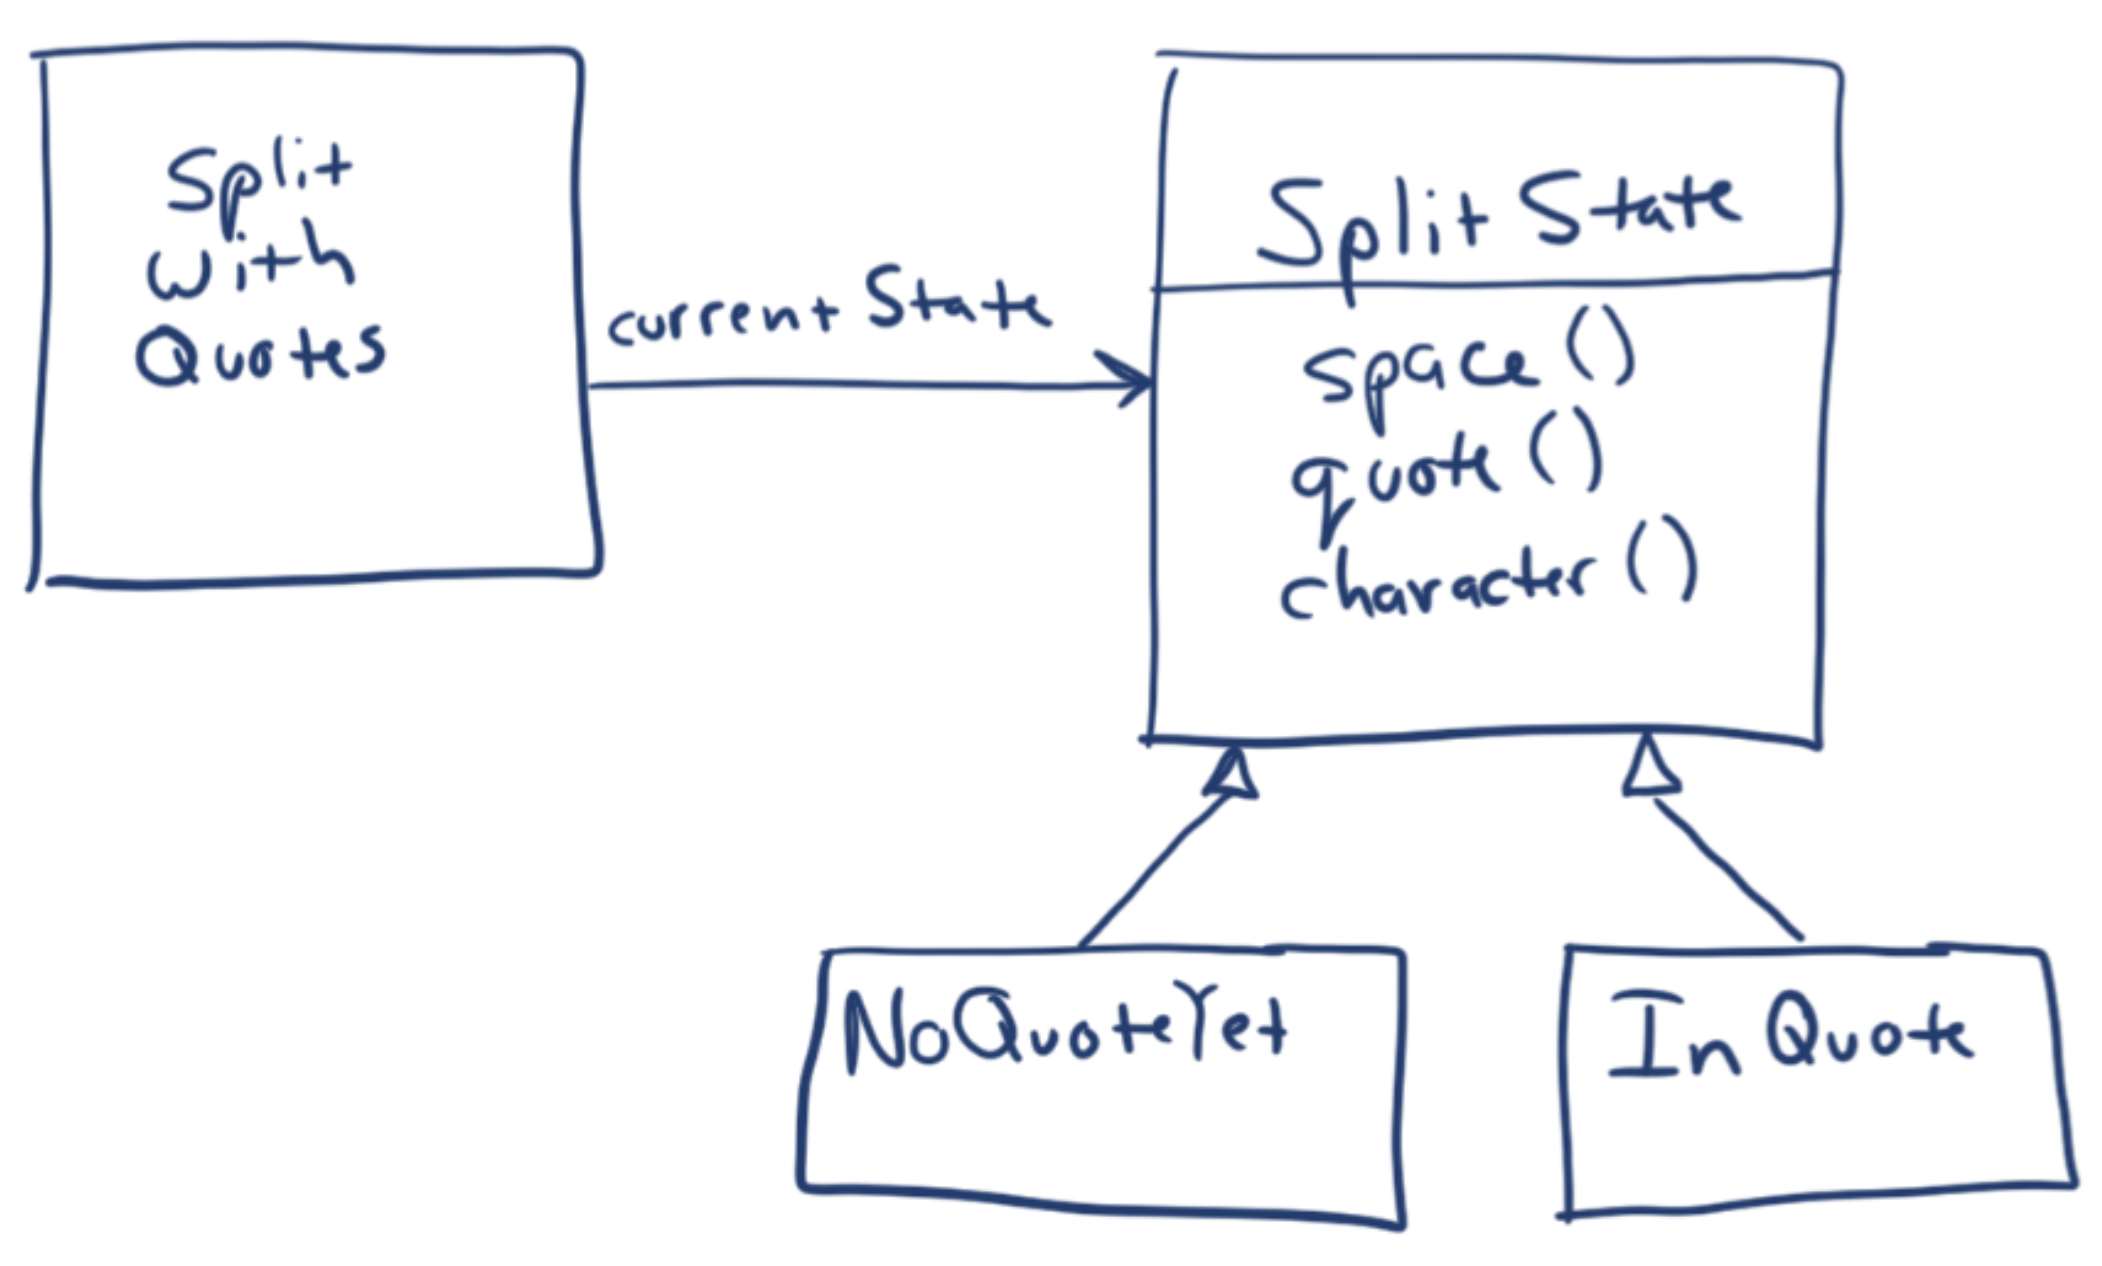 Split
with
Quotes
current State
Split State
space ()
quote ()
character ()
NoQuoteYet
In Quote